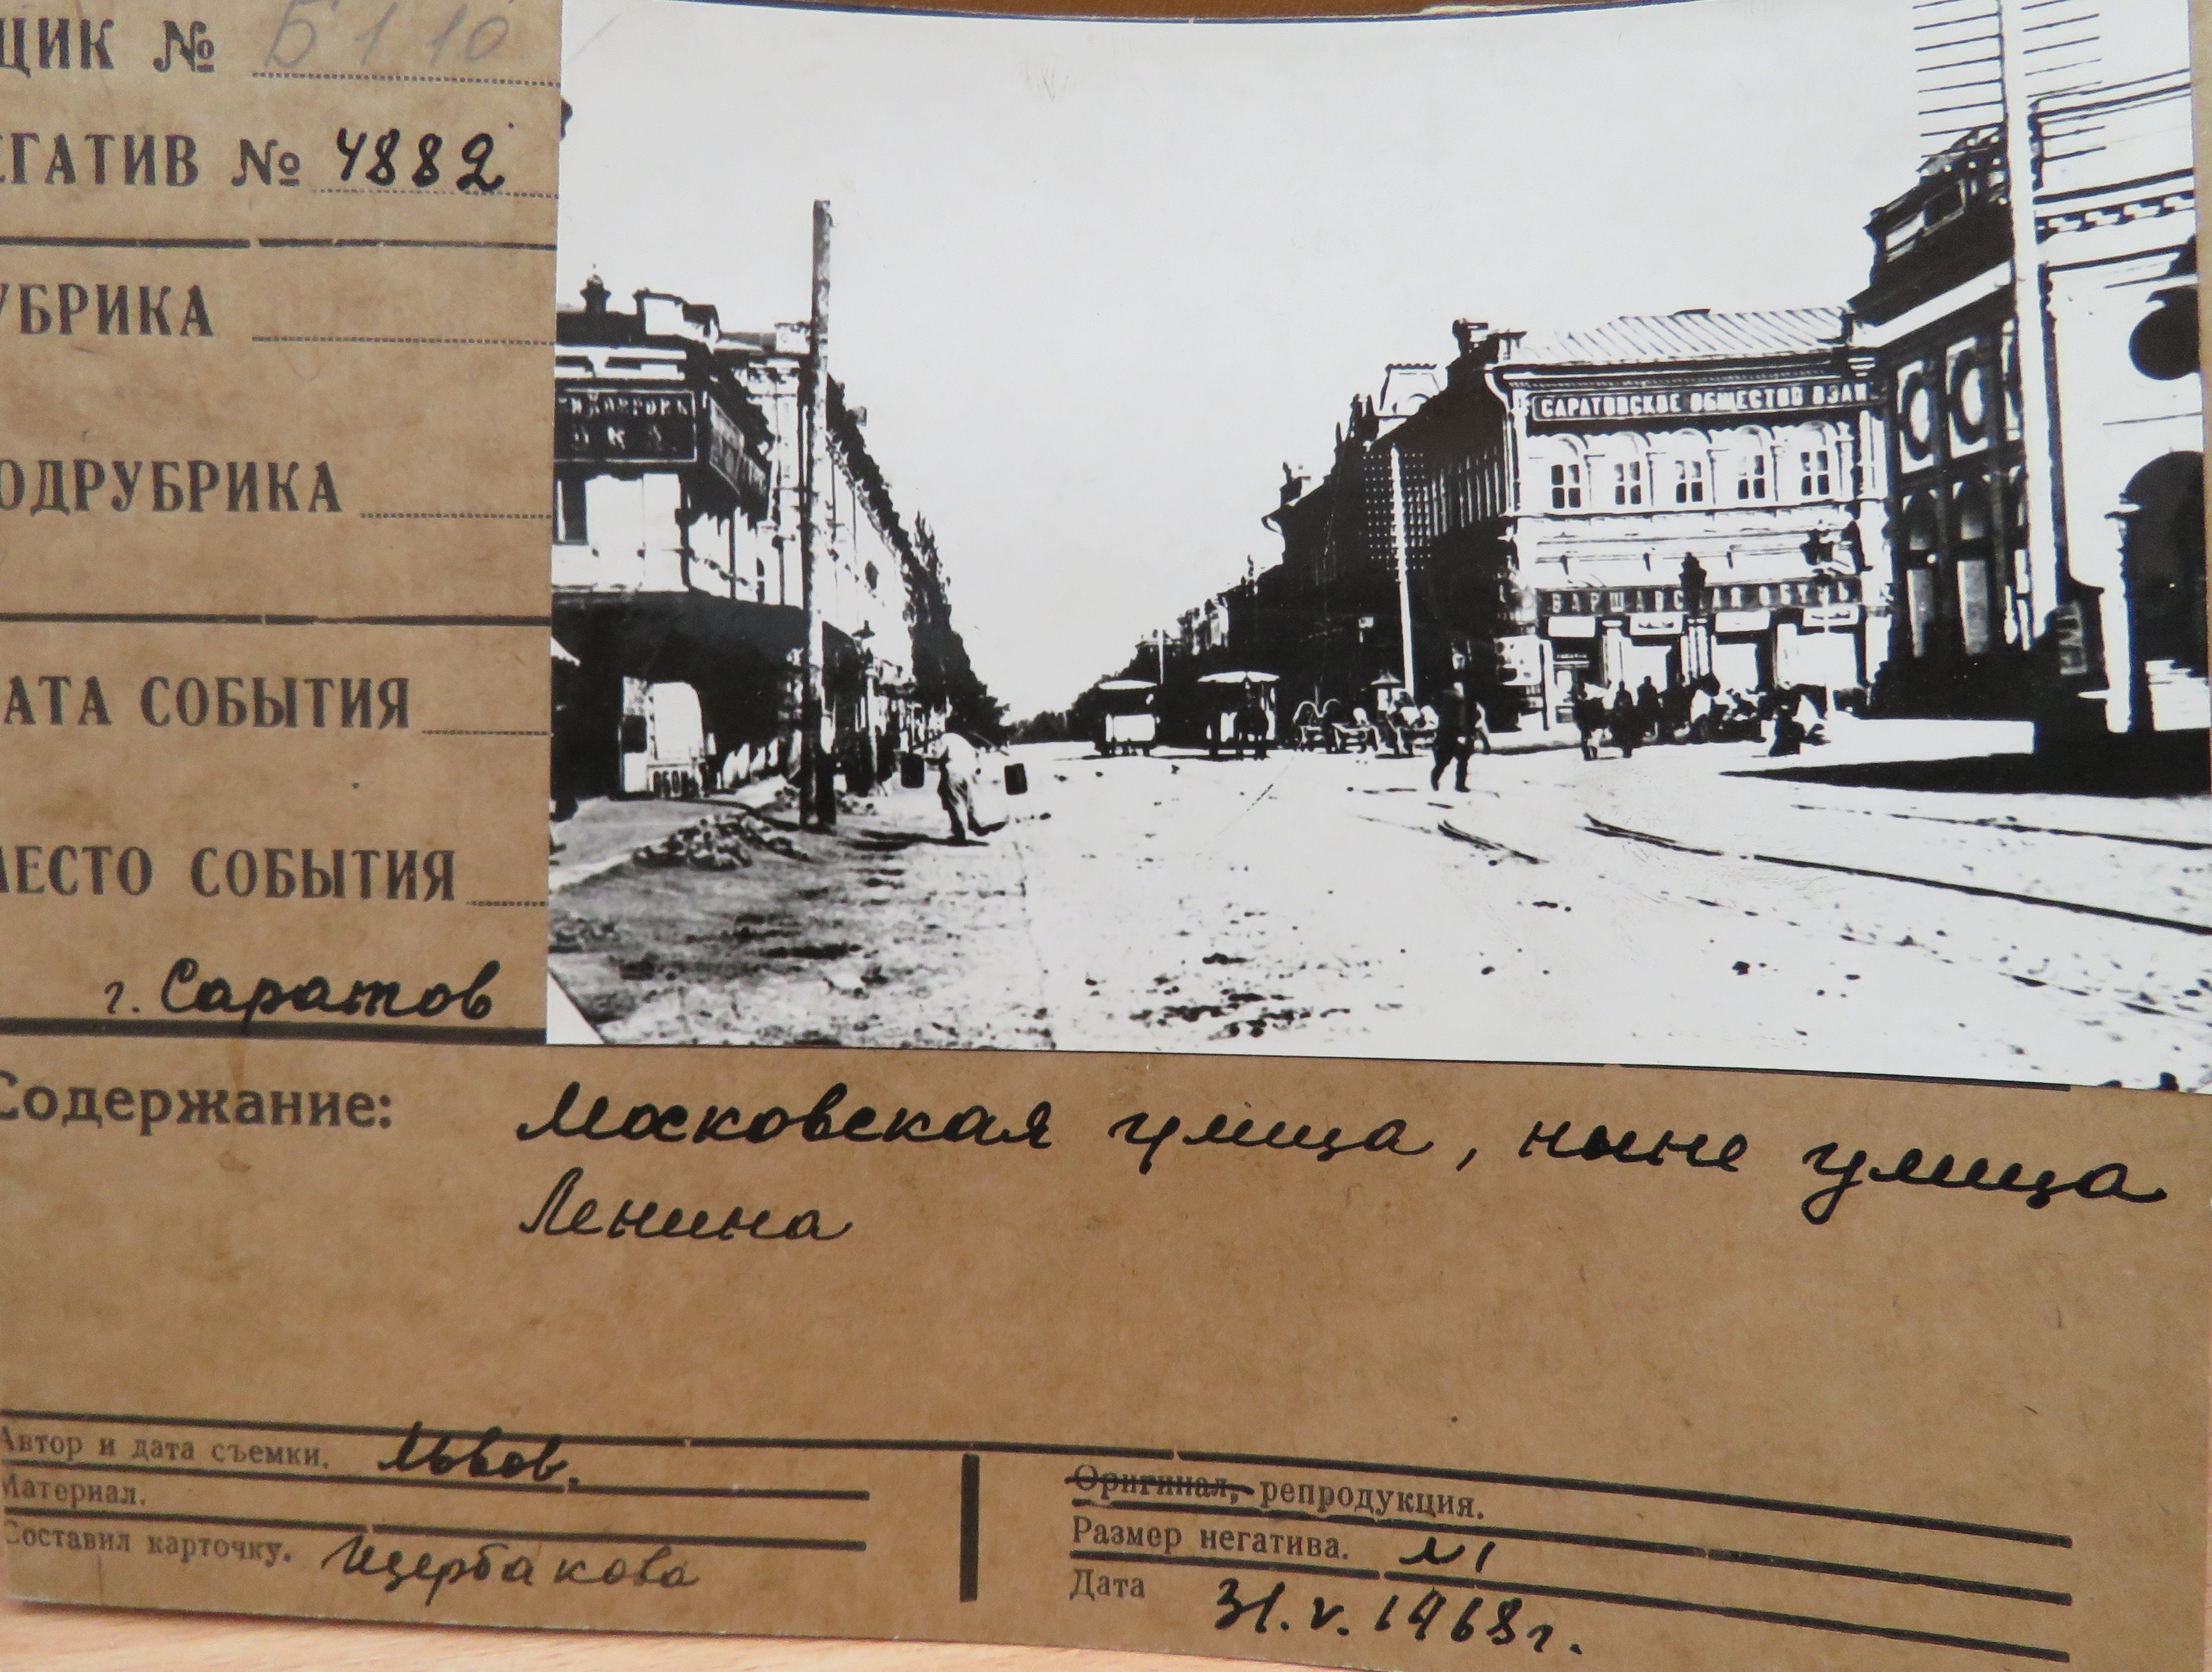 ЩИК № Б110
ЕГАТИВ № 4882
УБРИКА
ОДРУБРИКА
АТА СОБЫТИЯ
МЕСТО СОБЫТИЯ
г. Саратов
САРАТОВСКОЕ ОБЩЕСТВО ВЗАИ
ВАРШАВСКАЯ ОБУВЬ
Содержание: Московская улица, ныне улица
Ленина
Автор и дата съемки. Львов.
Материал.
Составил карточку. Щербакова
Оригинал, репродукция.
Размер негатива.
Дата 31.V.1968г.